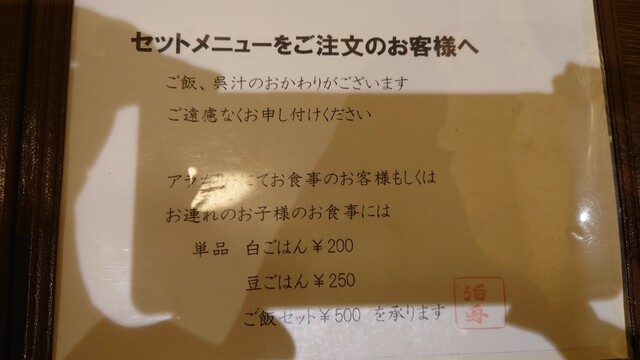 セットメニューをご注文のお客様へ
ご飯、呉汁のおかわりがございます
ご遠慮なくお申し付けください
アラカルトにてお食事のお客様もしくは
お連れのお子様のお食事には
単品 白ごはん¥200
豆ごはん¥250
ご飯セット¥500 を承ります